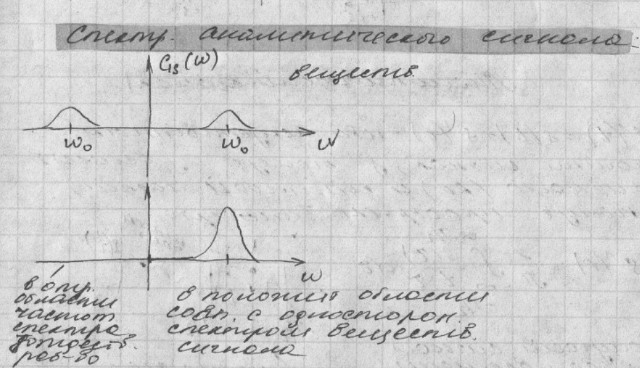 Спектр. аналитического сигнала:
C_{1s}(ω)
веществ.
ω₀ ω₀ ω
ω
в отр.
области
частот
спектра
тождеств.
рав-во
в положит области
совп. с односторон.
спектром веществ.
сигнала